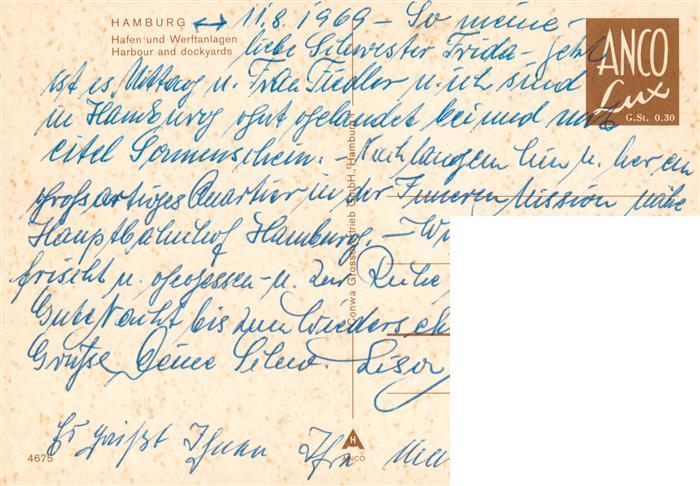 HAMBURG ↔ 11.8.1969 – So meine
Hafen und Werftanlagen
Harbour and dockyards
liebe Schwester Frida – jetzt
ist es Mittag u. Frau Fiedler u. ich sind
in Hamburg gut gelandet bei und mit
eitel Sonnenschein. – Nach langem hin u. her ein
großartiges Quartier in der Inneren Mission nähe
Hauptbahnhof Hamburg. –
frischt u. gegessen – u. zur Ruhe,
Gute Nacht bis zum Wiederseh
Grüße, Deine Schw. Lisa
Es grüßt Ihnen Ihr
ANCO
Lux
G.St. 0.30
Conwa Grossvertrieb GmbH., Hamburg
4675
H
ANCO